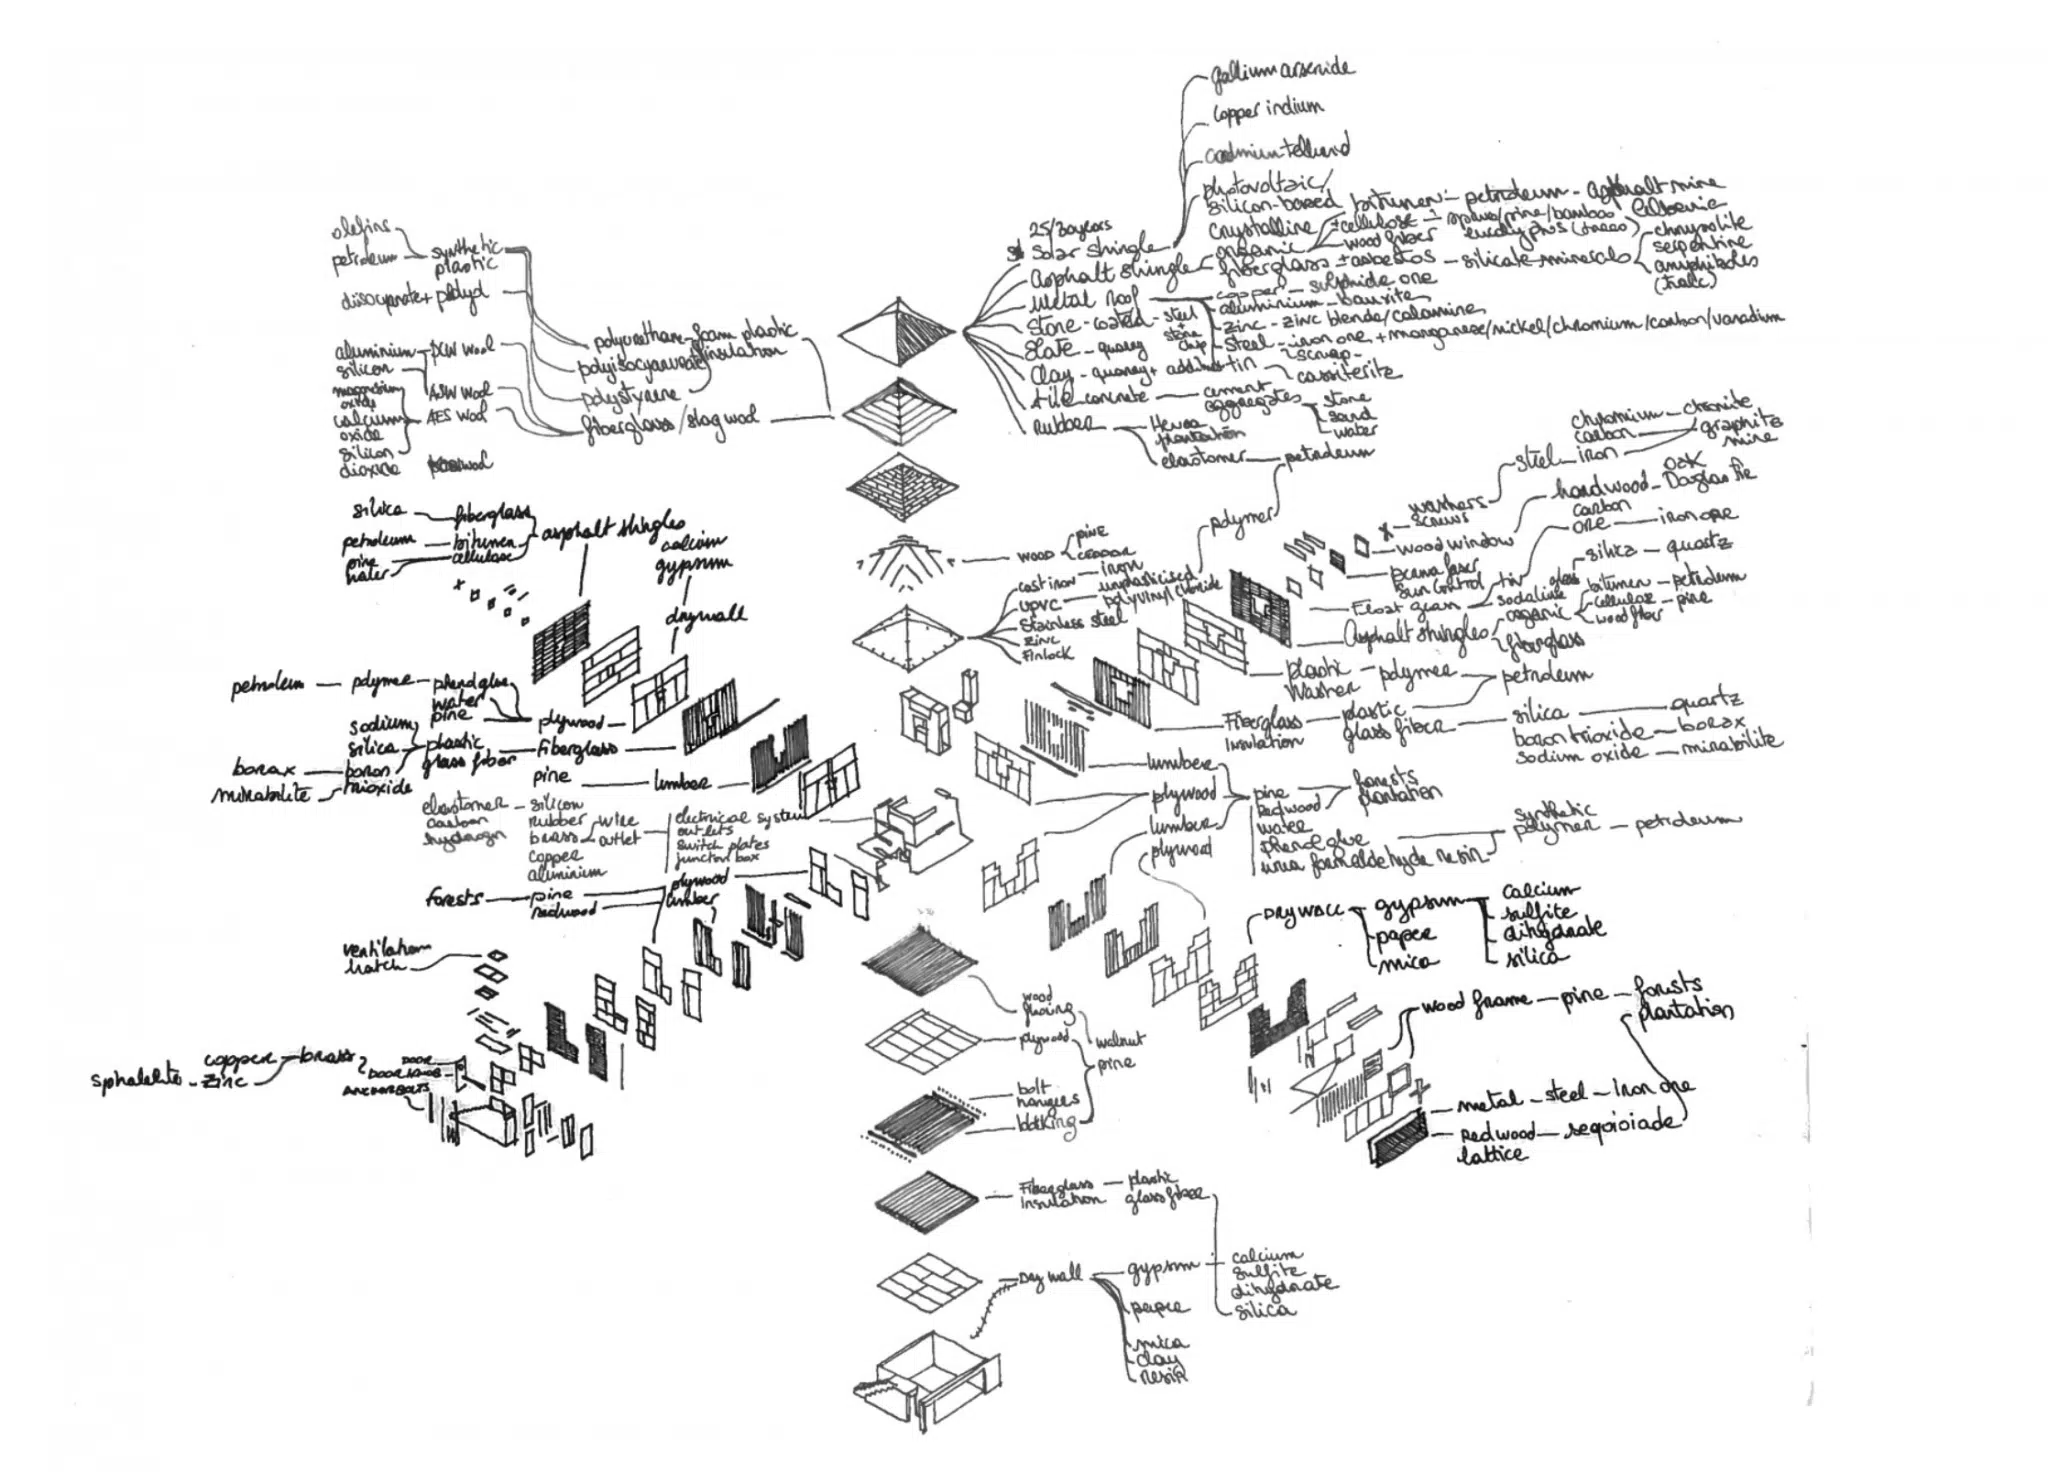 gallium arsenide
copper indium
cadmium tellurid
photovoltaic/
silicon-based
crystalline
25/30 years
solar shingle
organic
bitumen - petroleum - asphalt mine
± cellulose - spruce/pine/bamboo
wood fiber
eucalyptus (trees)
asphalt shingle
fiberglass ± asbestos - silicate minerals
chrysolite
serpentine
amphiboles
(talc)
metal roof
copper - sulphide ore
aluminium - bauxite
zinc - zinc blende/calamine
steel - iron ore + manganese/nickel/chromium/carbon/vanadium
scrap
stone-coated-steel
+
stone
chip
slate - quarry
clay - quarry +
tin
cassiterite
tile concrete - cement
aggregates
stone
sand
water
rubber
Hevea
plantation
elastomer - petroleum
olefins
petroleum - synthetic
plastic
diisocyanate +
polyurethane-foam plastic
insulation
polyisocyanurate
polystyrene
fiberglass/slag wool
aluminium - PCW wool
silicon
magnesium
oxide
ASW wool
calcium
oxide
AES wool
silicon
dioxide
silica - fiberglass
petroleum - bitumen
pine - cellulose
water
asphalt shingles
calcium
gypsum
drywall
wood
pine
cast iron - iron
UPVC - unplasticised
polyvinyl chloride
stainless steel
zinc
Finlock
polymer
washers
screws
steel - iron
chromium - chromite
carbon
graphite
mine
wood window
hardwood - oak
Douglas fir
carbon
ore - iron ore
sun control - tin
Float glass
sodalime
glass
silica - quartz
Asphalt shingles
organic
bitumen - petroleum
cellulose
wood fiber - pine
fiberglass
plastic
washer - polymer
petroleum
Fiberglass
Insulation
plastic
glass fiber - silica - quartz
boron trioxide - borax
sodium oxide - mirabilite
petroleum - polymer - phenol glue
water
pine
plywood
sodium
silica
boron
trioxide
borax
mirabilite
plastic
glass fiber - fiberglass
pine - lumber
elastomer - silicon
carbon
hydrogen
rubber
brass
wire
outlet
copper
aluminium
electrical system
outlets
switch plates
junction box
forests - pine
redwood
plywood
lumber
ventilation
hatch
sphalelite - zinc
copper - brass
DOOR
DOOR KNOB
ANCHOR BOLTS
lumber
plywood
lumber
plywood
pine
redwood
water
phenol glue
urea formaldehyde resin
forests
plantation
synthetic
polymer - petroleum
DRYWALL
gypsum
paper
mica
calcium
sulfite
dihydrate
silica
wood frame - pine - forests
plantation
metal - steel - iron ore
Redwood
lattice
sequioiade
wood
plywood
walnut
pine
bolt
hangers
Fiberglass
Insulation
plastic
glass fiber
Dry wall
gypsum
paper
mica
clay
resin
calcium
sulfite
dihydrate
silica